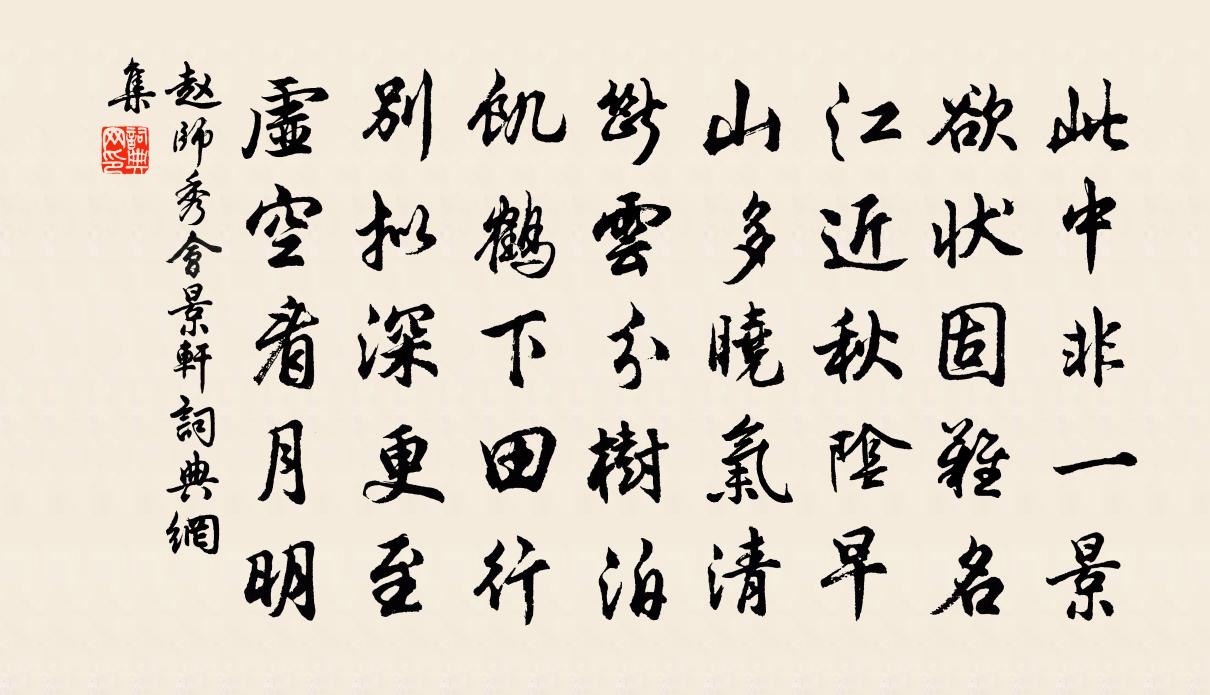 此中非一景
欲状固難名
江近秋陰早
山多曉氣清
斷雲分樹泊
飢鶴下田行
别拟深更至
虛空看月明
赵師秀會景軒詞典網
集
詞典
网印